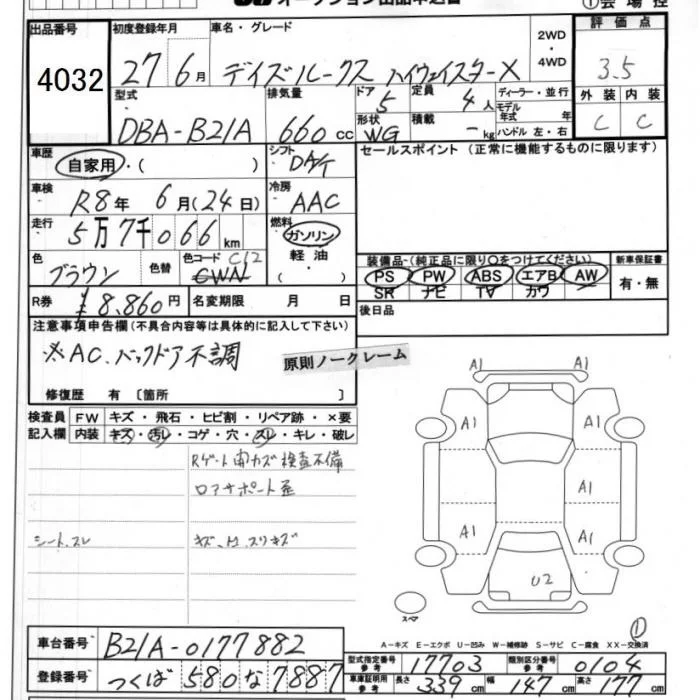 オークション出品申込書
①会場控
出品番号 初度登録年月 車名・グレード 2WD・4WD 評価点
4032 27年6月 デイズルークス ハイウェイスターX 3.5
型式 排気量 ドア 5 定員 4人 ディーラー・並行 外装 内装
DBA-B21A 660cc 形状 WG 積載 -kg モデル年式 年 ハンドル 左・右 C C
車歴 自家用・( ) シフト DA/T セールスポイント (正常に機能するものに限ります)
車検 R8年 6月(24日) 冷房 AAC
走行 5万7千066km 燃料 ガソリン・軽油・( )
色 ブラウン 色替 色コード C12 CWN
装備品-(純正品に限り○をつけてください) 新車保証書
PS PW ABS エアB AW 有・無
SR ナビ TV カワ
R券 ¥8,860円 名変期限 月 日 後日品
注意事項申告欄(不具合内容等は具体的に記入して下さい)
※AC、バックドア不調
原則ノークレーム
修復歴 有 〔箇所 〕
検査員 FW キズ・飛石・ヒビ割・リペア跡・×要
記入欄 内装 キズ・汚レ・コゲ・穴・スレ・キレ・破レ
Rゲート開カズ検査不備
ロアサポート歪
シート、スレ
A1 A1
A1 A1
A1
A1 A1
U2
スペア
①
A-キズ E-エクボ U-凹み W-補修跡 S-サビ C-腐食 XX-交換済
車台番号 B21A-0177882
型式指定番号 参考 17703 類別区分番号 参考 0104
登録番号 つくば 580 な 7887
車庫証明用 参考 長さ 339cm 幅 147cm 高さ 177cm